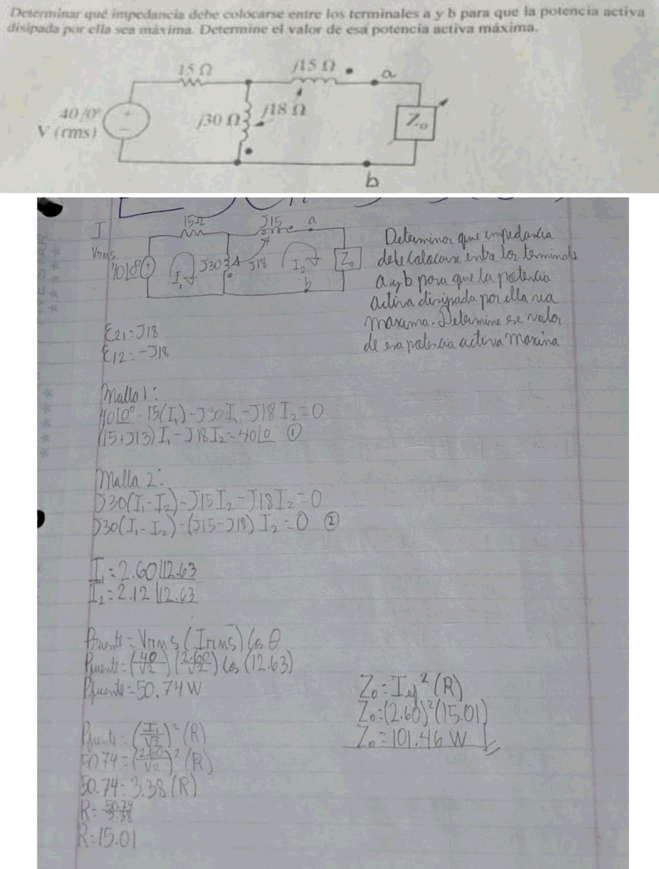 Determinar qué impedancia debe colocarse entre los terminales a y b para que la potencia activa
disipada por ella sea máxima. Determine el valor de esa potencia activa máxima.
15 Ω
j15 Ω
a
40/0°
V (rms)
j30 Ω
j18 Ω
Z₀
b
I
15Ω
J15
a
Vrms
40∠0°
I₁
J30
J18
I₂
Z₀
b
Determinar que impedancia
debe colocarse entre los terminales
a y b para que la potencia
activa disipada por ella sea
maxima. Determine ese valor
de esa potencia activa maxima
Ɛ21=J18
Ɛ12=-J18
Malla 1:
40∠0° - 15(I₁) - J30I₁ - J18 I₂ = 0
(15+J13) I₁ - J18 I₂ = 40∠0 ①
Malla 2:
J30(I₁-I₂) - J15 I₂ - J18 I₂ = 0
J30(I₁-I₂) - (J15-J18) I₂ = 0 ②
I₁ = 2.60∠12.63
I₂ = 2.12∠12.63
Pfuente = Vrms (Irms) Cos θ
Pfuente = (40/√2) (2.60/√2) Cos (12.63)
Pfuente = 50.74 W
Pfuente = (I₁/√2)² (R)
50.74 = (2.60/√2)² (R)
50.74 = 3.38 (R)
R = 50.74/3.38
R = 15.01
Z₀ = Ief² (R)
Z₀ = (2.60)² (15.01)
Z₀ = 101.46 W